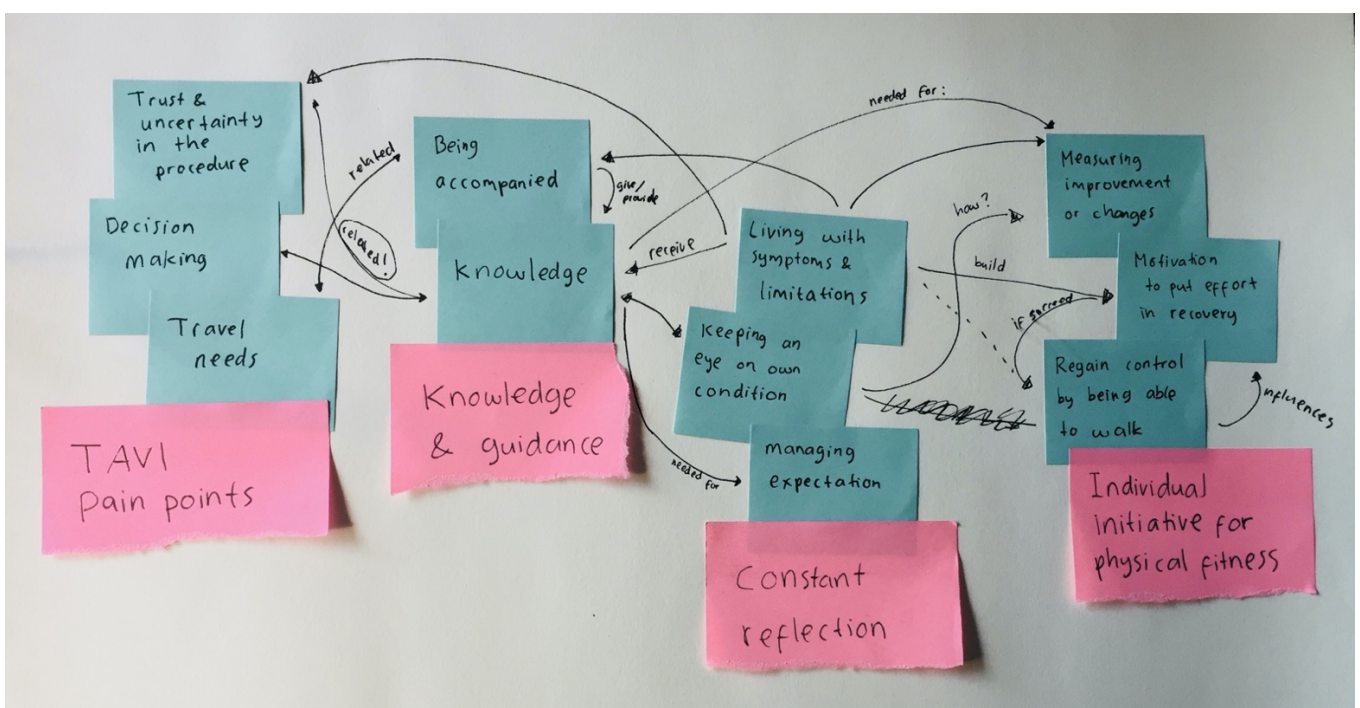 Trust &
uncertainty
in the
procedure
Decision
making
Travel
needs
TAVI
Pain points
related
related!
Being
accompanied
give/
provide
Knowledge
Knowledge
& guidance
receive
needed for
needed for:
Living with
symptoms &
limitations
Keeping an
eye on own
condition
managing
expectation
Constant
reflection
how?
build
if succeed
Measuring
improvement
or changes
Motivation
to put effort
in recovery
Regain control
by being able
to walk
influences
Individual
initiative for
physical fitness